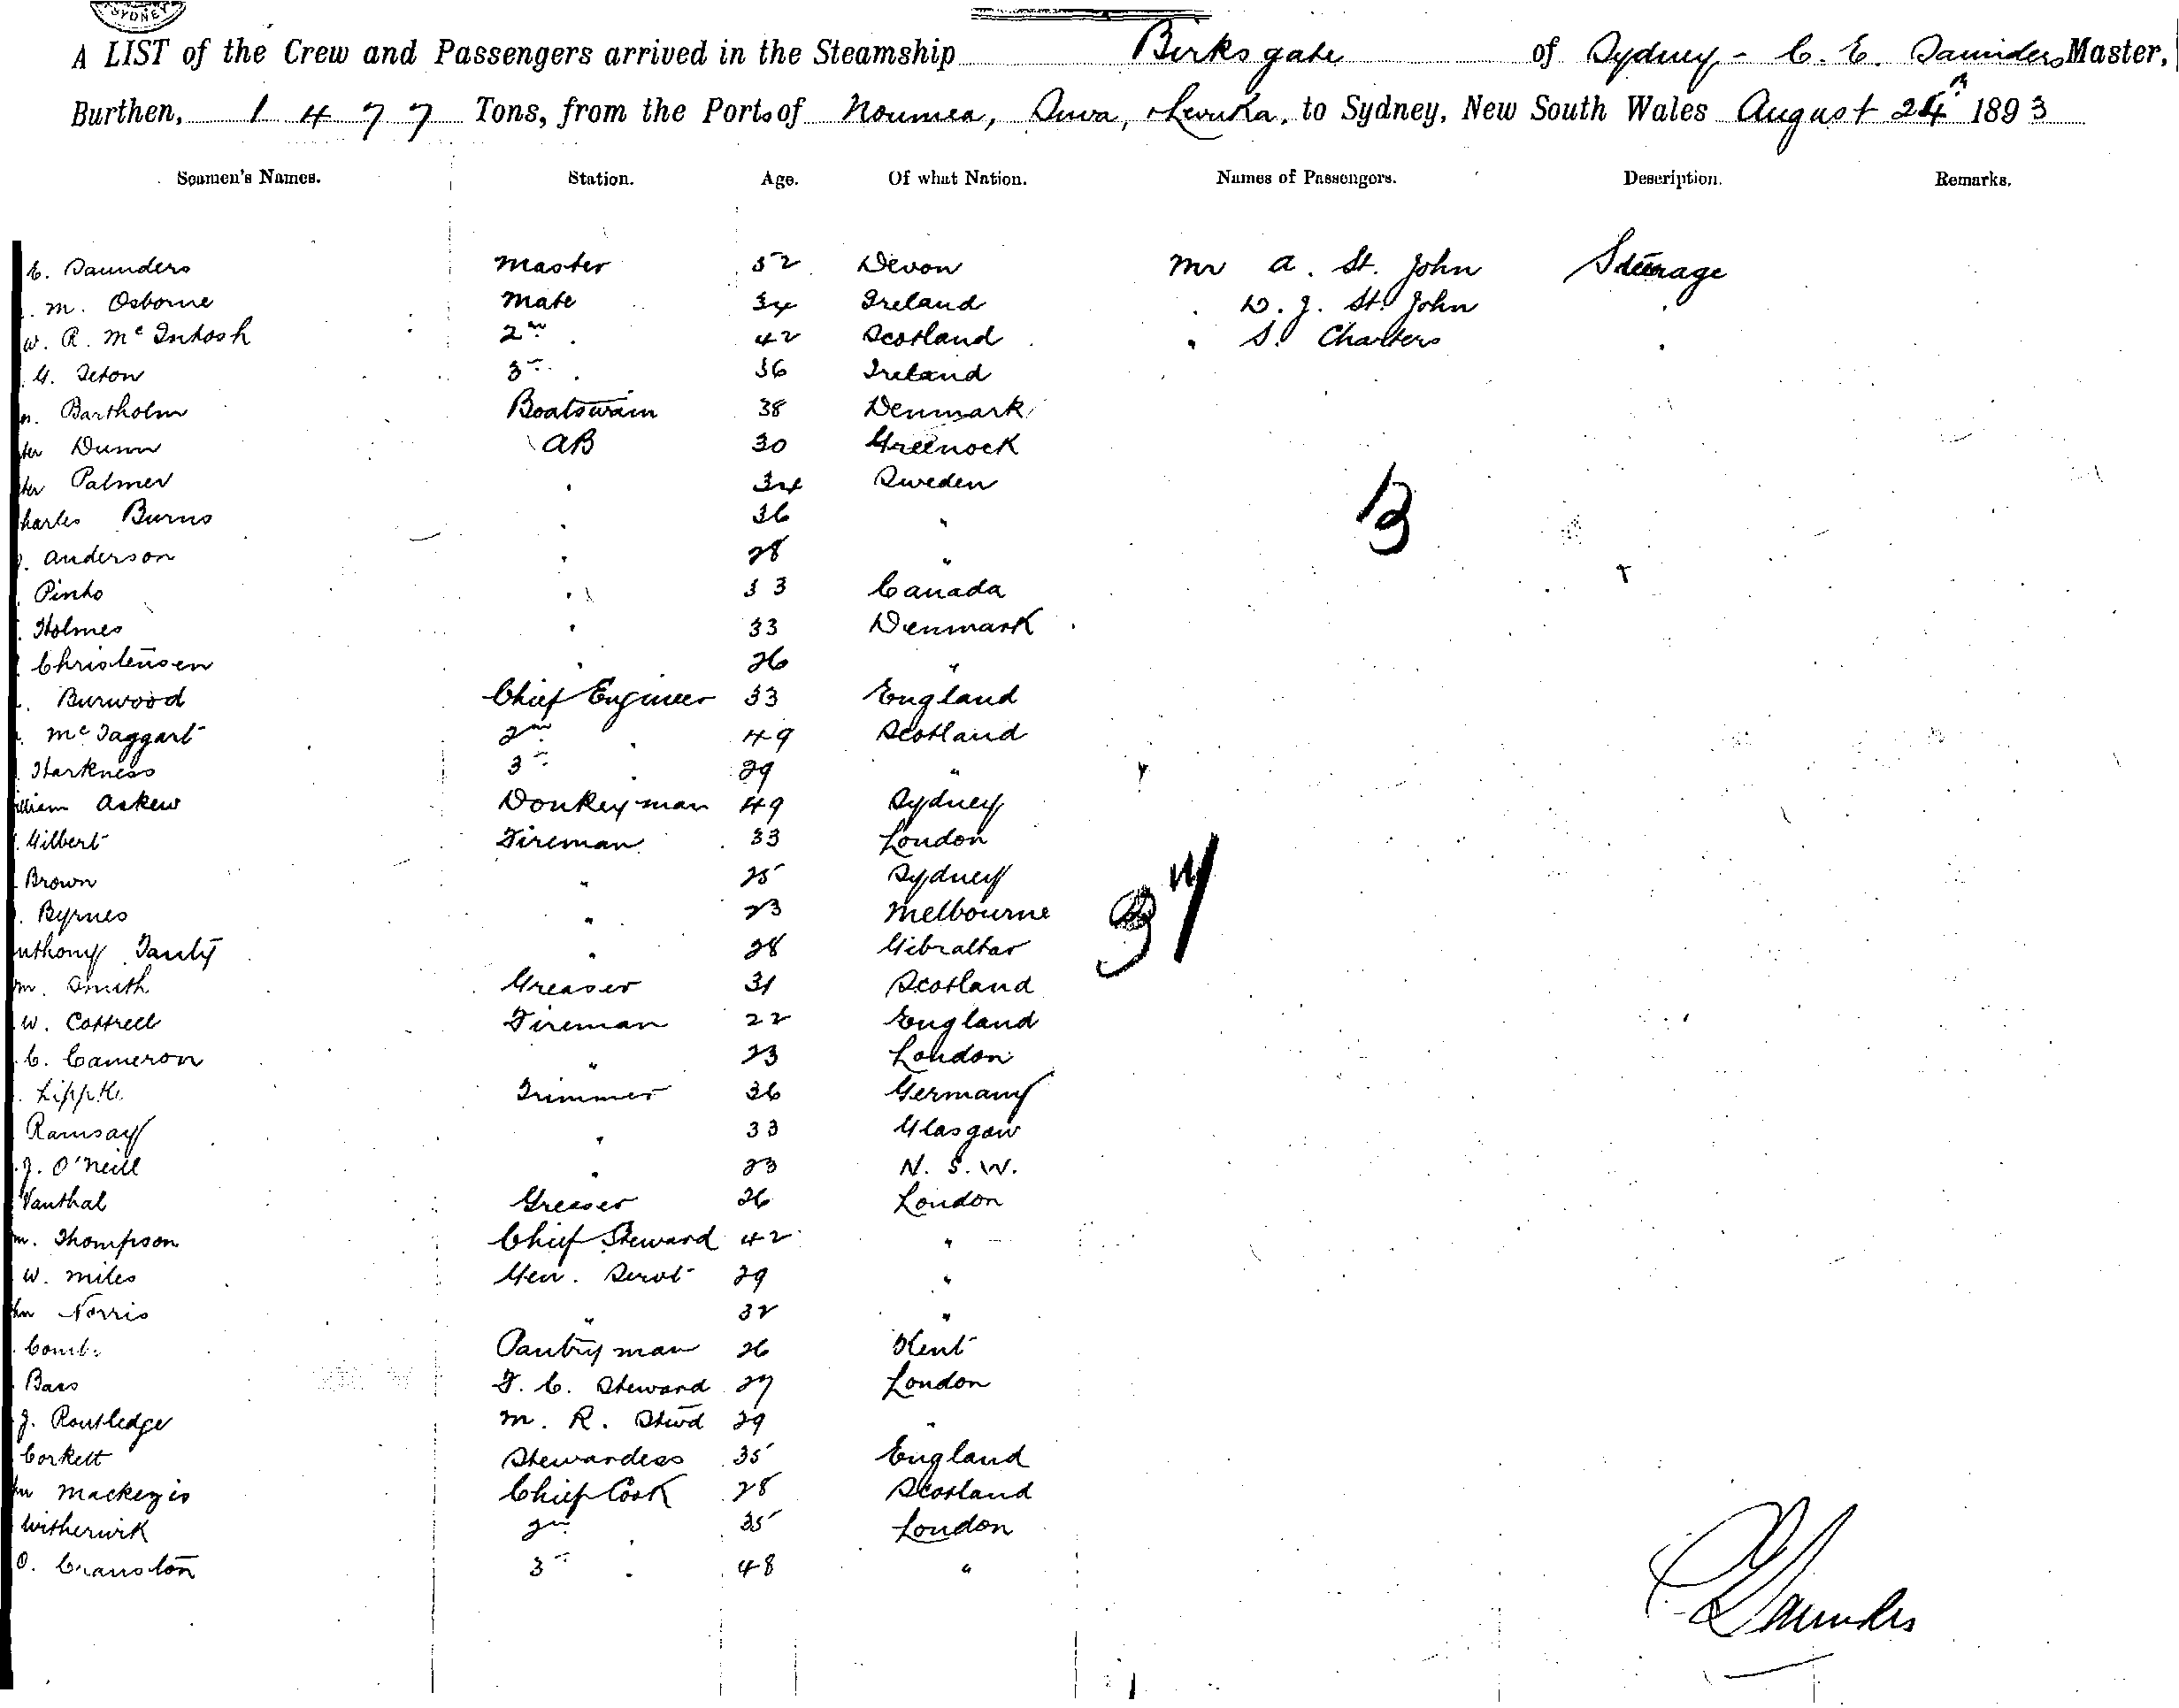 SYDNEY
A LIST of the Crew and Passengers arrived in the Steamship Birksgate of Sydney - C. E. Saunders Master,
Burthen, 1477 Tons, from the Ports of Noumea, Suva, & Levuka, to Sydney, New South Wales August 24th 1893
Seamen's Names. Station. Age. Of what Nation. Names of Passengers. Description. Remarks.
E. Saunders Master 52 Devon Mr A. St. John Steerage
. M. Osborne Mate 34 Ireland " W. J. St. John "
W. R. McIntosh 2nd " 42 Scotland " S. Charters "
G. Seton 3rd " 36 Ireland
m. Bartholm Boatswain 38 Denmark
ter Dunn AB 30 Greenock
ter Palmer " 34 Sweden
harles Burns " 36 "
. Anderson " 28 "
Pinto " 33 Canada
. Holmes " 33 Denmark
Christensen " 26 "
. Burwood Chief Engineer 33 England
. McTaggart 2nd " 49 Scotland
Harkness 3rd " 29 "
illiam Askew Donkeyman 49 Sydney
. Gilbert Fireman 33 London
Brown " 25 Sydney
. Byrnes " 23 Melbourne
nthony " 28 Gibraltar
m. Smith Greaser 31 Scotland
W. Cottrell Fireman 22 England
C. Cameron " 23 London
. Trimmer 36 Germany
Ramsay " 33 Glasgow
. J. O'Neill " 23 N. S. W.
Vanthal Greaser 26 London
m. Thompson Chief Steward 42 "
W. Miles Gen. Servt 29 "
hn Norris " 32 "
. Pantryman 26 Kent
Bass F. C. Steward 27 London
J. Routledge M. R. Stwd 29 "
Corkett Stewardess 35 England
hn Mackenzie Chief Cook 28 Scotland
Witherwik 2nd " 35 London
O. Cranston 3rd " 48 "
B
37
C E Saunders